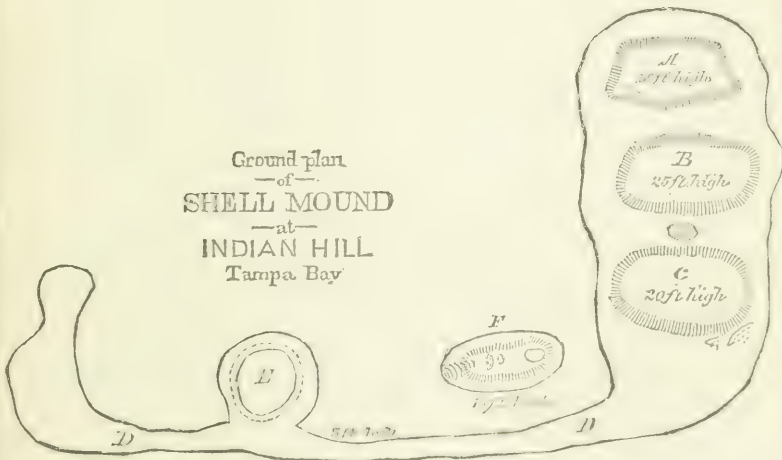 Ground plan
—of—
SHELL MOUND
—at—
INDIAN HILL
Tampa Bay
A
ft high
B
25 ft. high
C
20 ft high
D
E
5 ft high
F
D